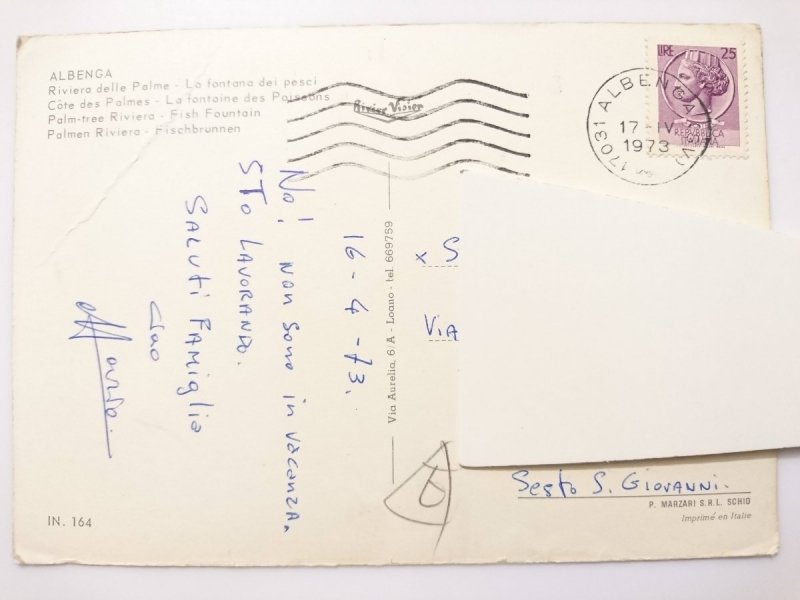 ALBENGA
Riviera delle Palme - La fontana dei pesci
Côte des Palmes - La fontaine des Poissons
Palm-tree Riviera - Fish Fountain
Palmen Riviera - Fischbrunnen
LIRE 25
REPUBBLICA
ITALIANA
17031 ALBENGA (SV)
17-IV
1973
16-4-73.
No! non sono in vacanza.
STO LAVORANDO.
SALUTI FAMIGLIA
ciao
Via Aurelia, 6/A - Loano - tel. 669759
x S
VIA
Sesto S. GIOVANNI.
P. MARZARI S.R.L. SCHIO
Imprimé en Italie
IN. 164